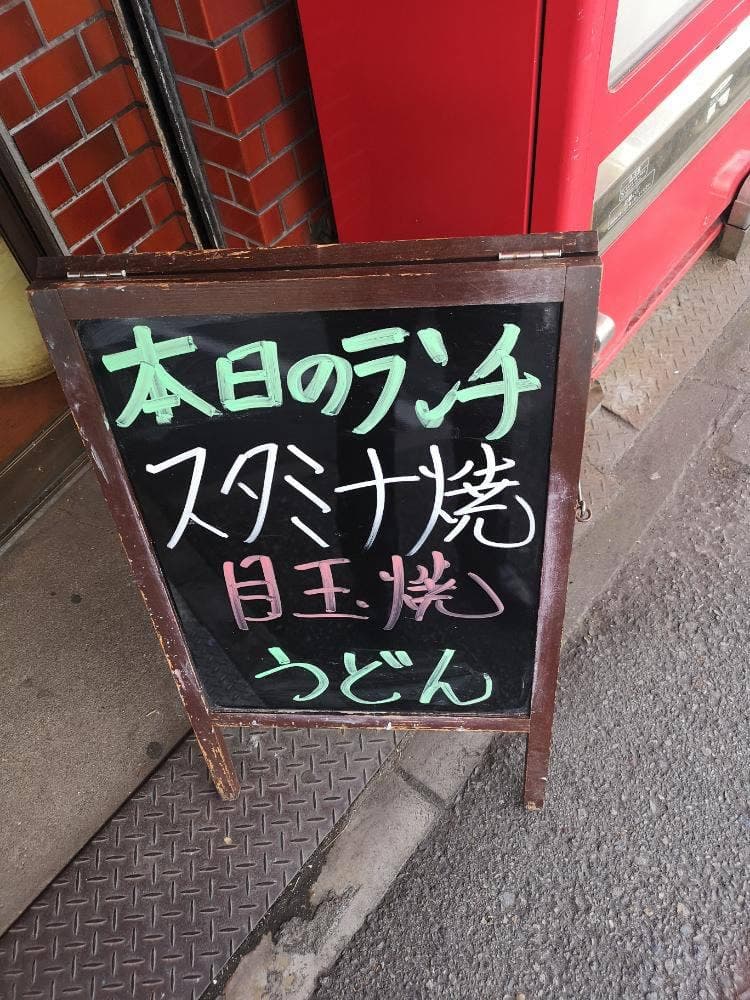 本日のランチ
スタミナ焼
目玉焼
うどん